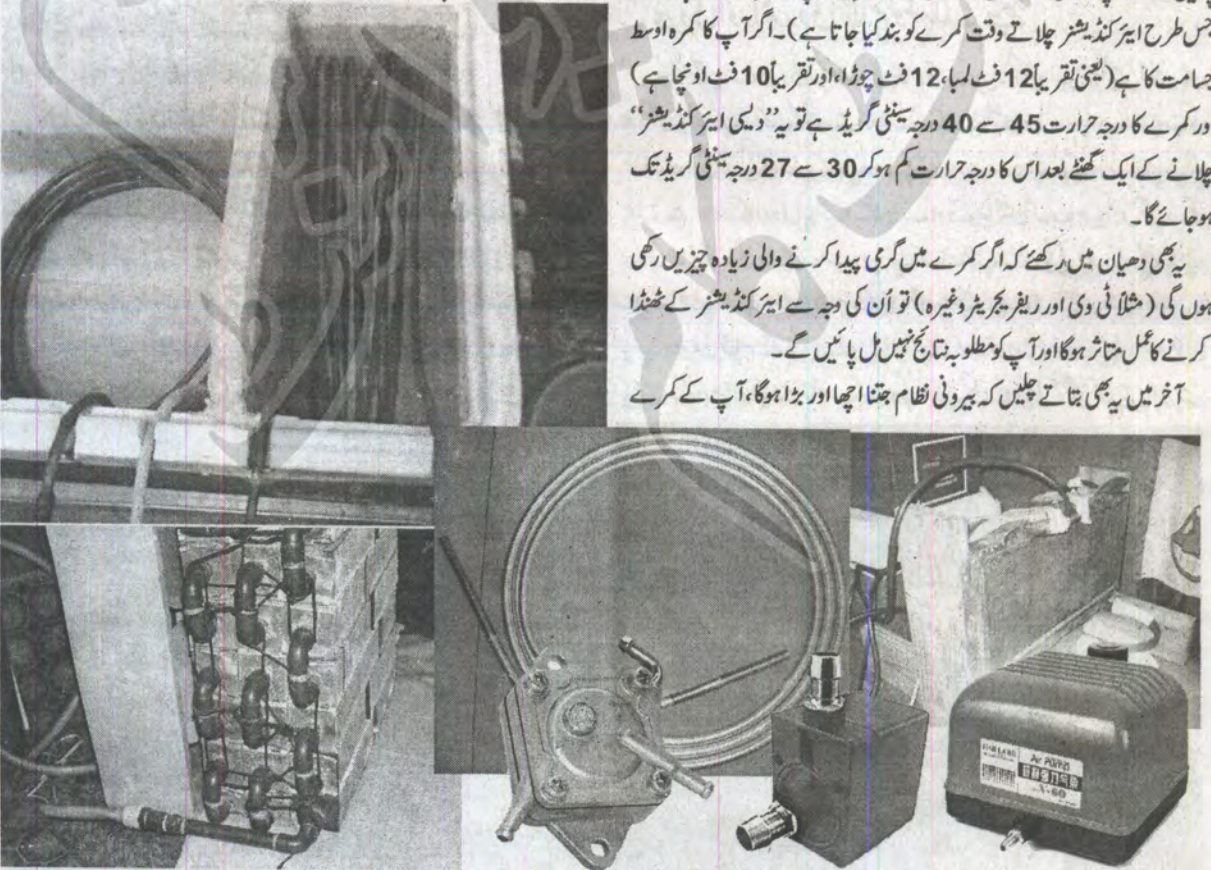 جس طرح ایئر کنڈیشنر چلاتے وقت کمرے کو بند کیا جاتا ہے)۔ اگر آپ کا کمرہ اوسط
جسامت کا ہے (یعنی تقریباً 12 فٹ لمبا، 12 فٹ چوڑا، اور تقریباً 10 فٹ اونچا ہے)
اور کمرے کا درجہ حرارت 45 سے 40 درجہ سینٹی گریڈ ہے تو یہ ’’دیسی ایئر کنڈیشنر‘‘
چلانے کے ایک گھنٹے بعد اس کا درجہ حرارت کم ہو کر 30 سے 27 درجہ سینٹی گریڈ تک
ہو جائے گا۔
یہ بھی دھیان میں رکھئے کہ اگر کمرے میں گرمی پیدا کرنے والی زیادہ چیزیں رکھی
ہوں گی (مثلاً ٹی وی اور ریفریجریٹر وغیرہ) تو اُن کی وجہ سے ایئر کنڈیشنر کے ٹھنڈا
کرنے کا عمل متاثر ہوگا اور آپ کو مطلوبہ نتائج نہیں مل پائیں گے۔
آخر میں یہ بھی بتاتے چلیں کہ بیرونی نظام جتنا اچھا اور بڑا ہوگا، آپ کے کمرے
Air POMPS